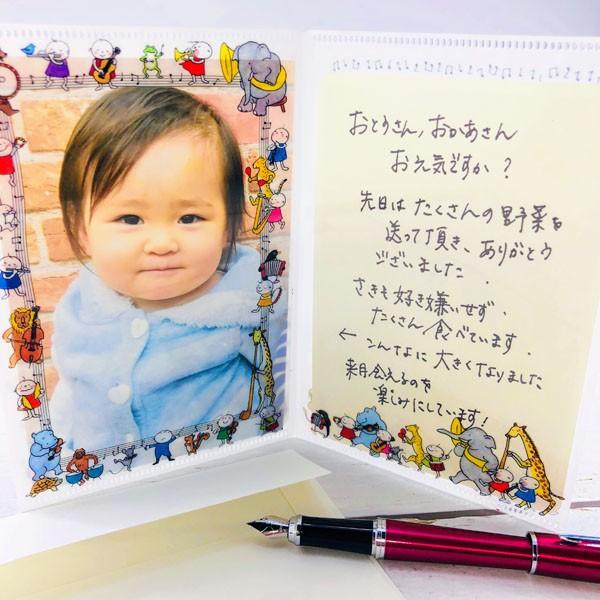 おとうさん,おかあさん
お元気ですか?
先日は たくさんの 野菜を
送って頂き、ありがとう
ございました.
さきも好き嫌いせず、
たくさん食べています.
← こんなに 大きくなりました
来月会えるのを
楽しみにしています!